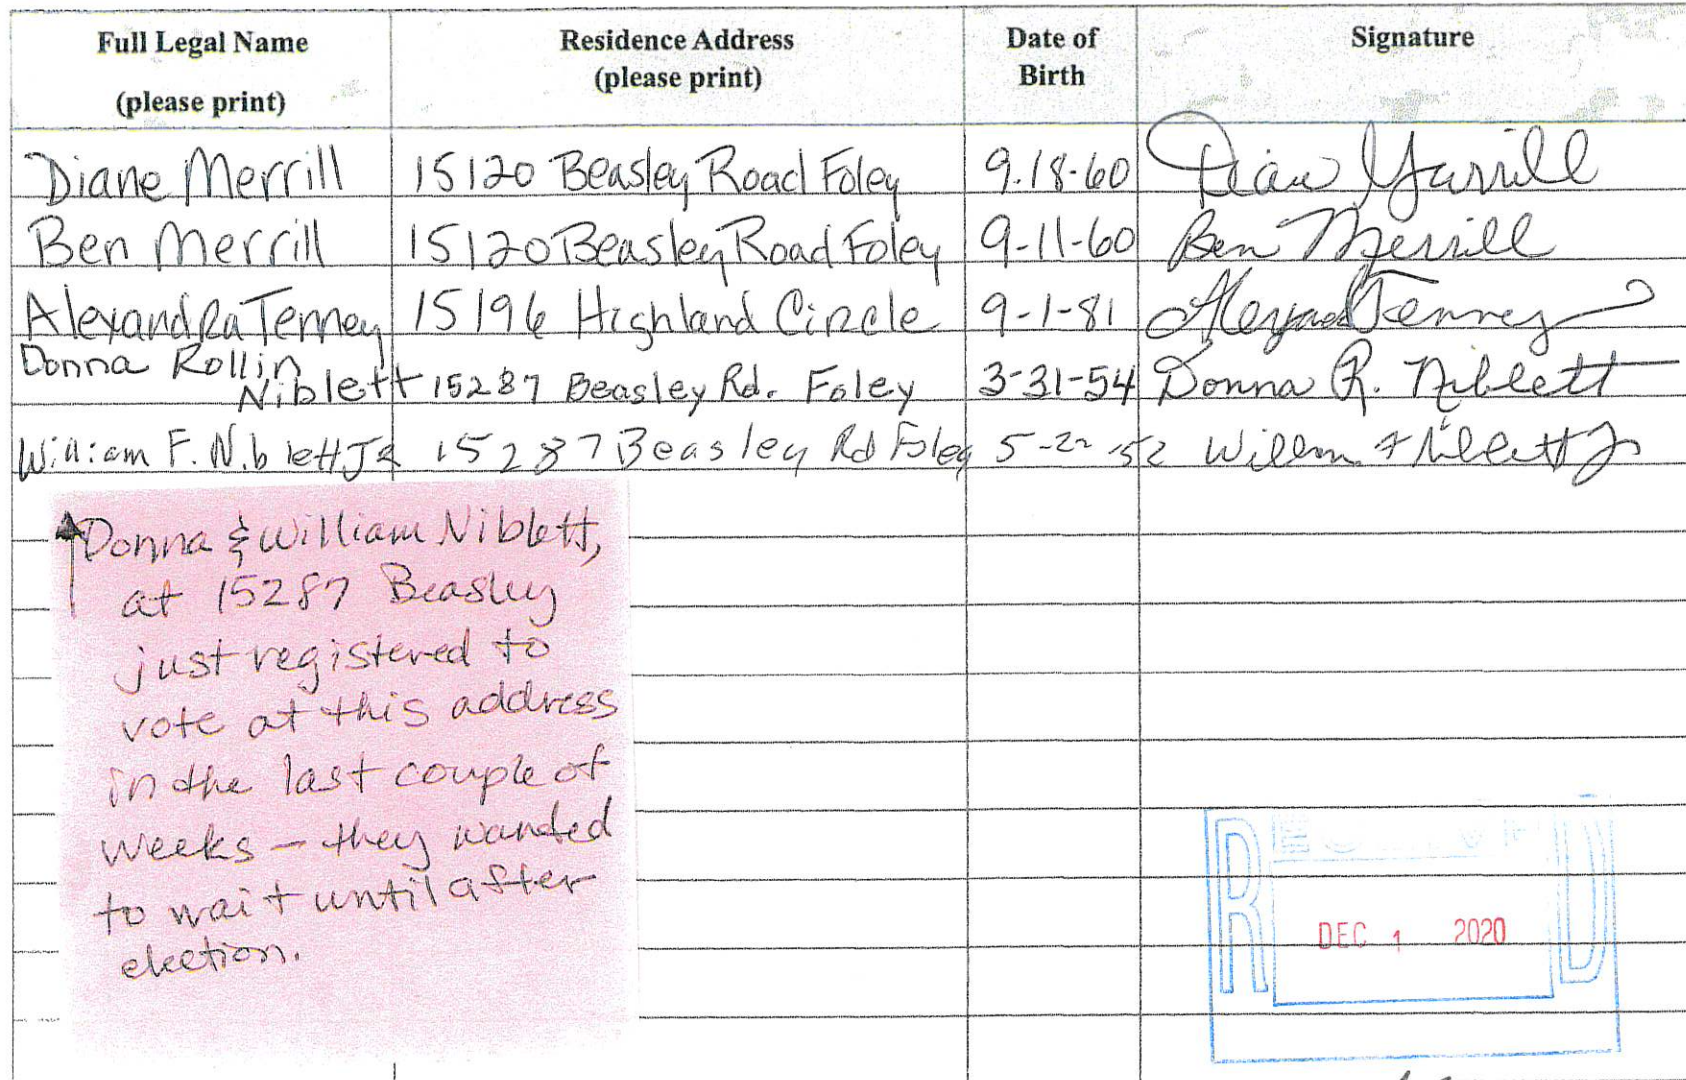 Full Legal Name
(please print)
Residence Address
(please print)
Date of
Birth
Signature
Diane Merrill 15120 Beasley Road Foley 9.18-60 Diane Merrill
Ben Merrill 15120 Beasley Road Foley 9-11-60 Ben Merrill
Alexandra Tenney 15196 Highland Circle 9-1-81 Alexandra Tenney
Donna Rollin
Niblett 15287 Beasley Rd. Foley 3-31-54 Donna R. Niblett
William F. Niblett Jr 15287 Beasley Rd Foley 5-22-52 William F Niblett Jr
Donna & William Niblett,
at 15287 Beasley
just registered to
vote at this address
in the last couple of
weeks - they wanted
to wait until after
election.
RECEIVED
DEC 1 2020